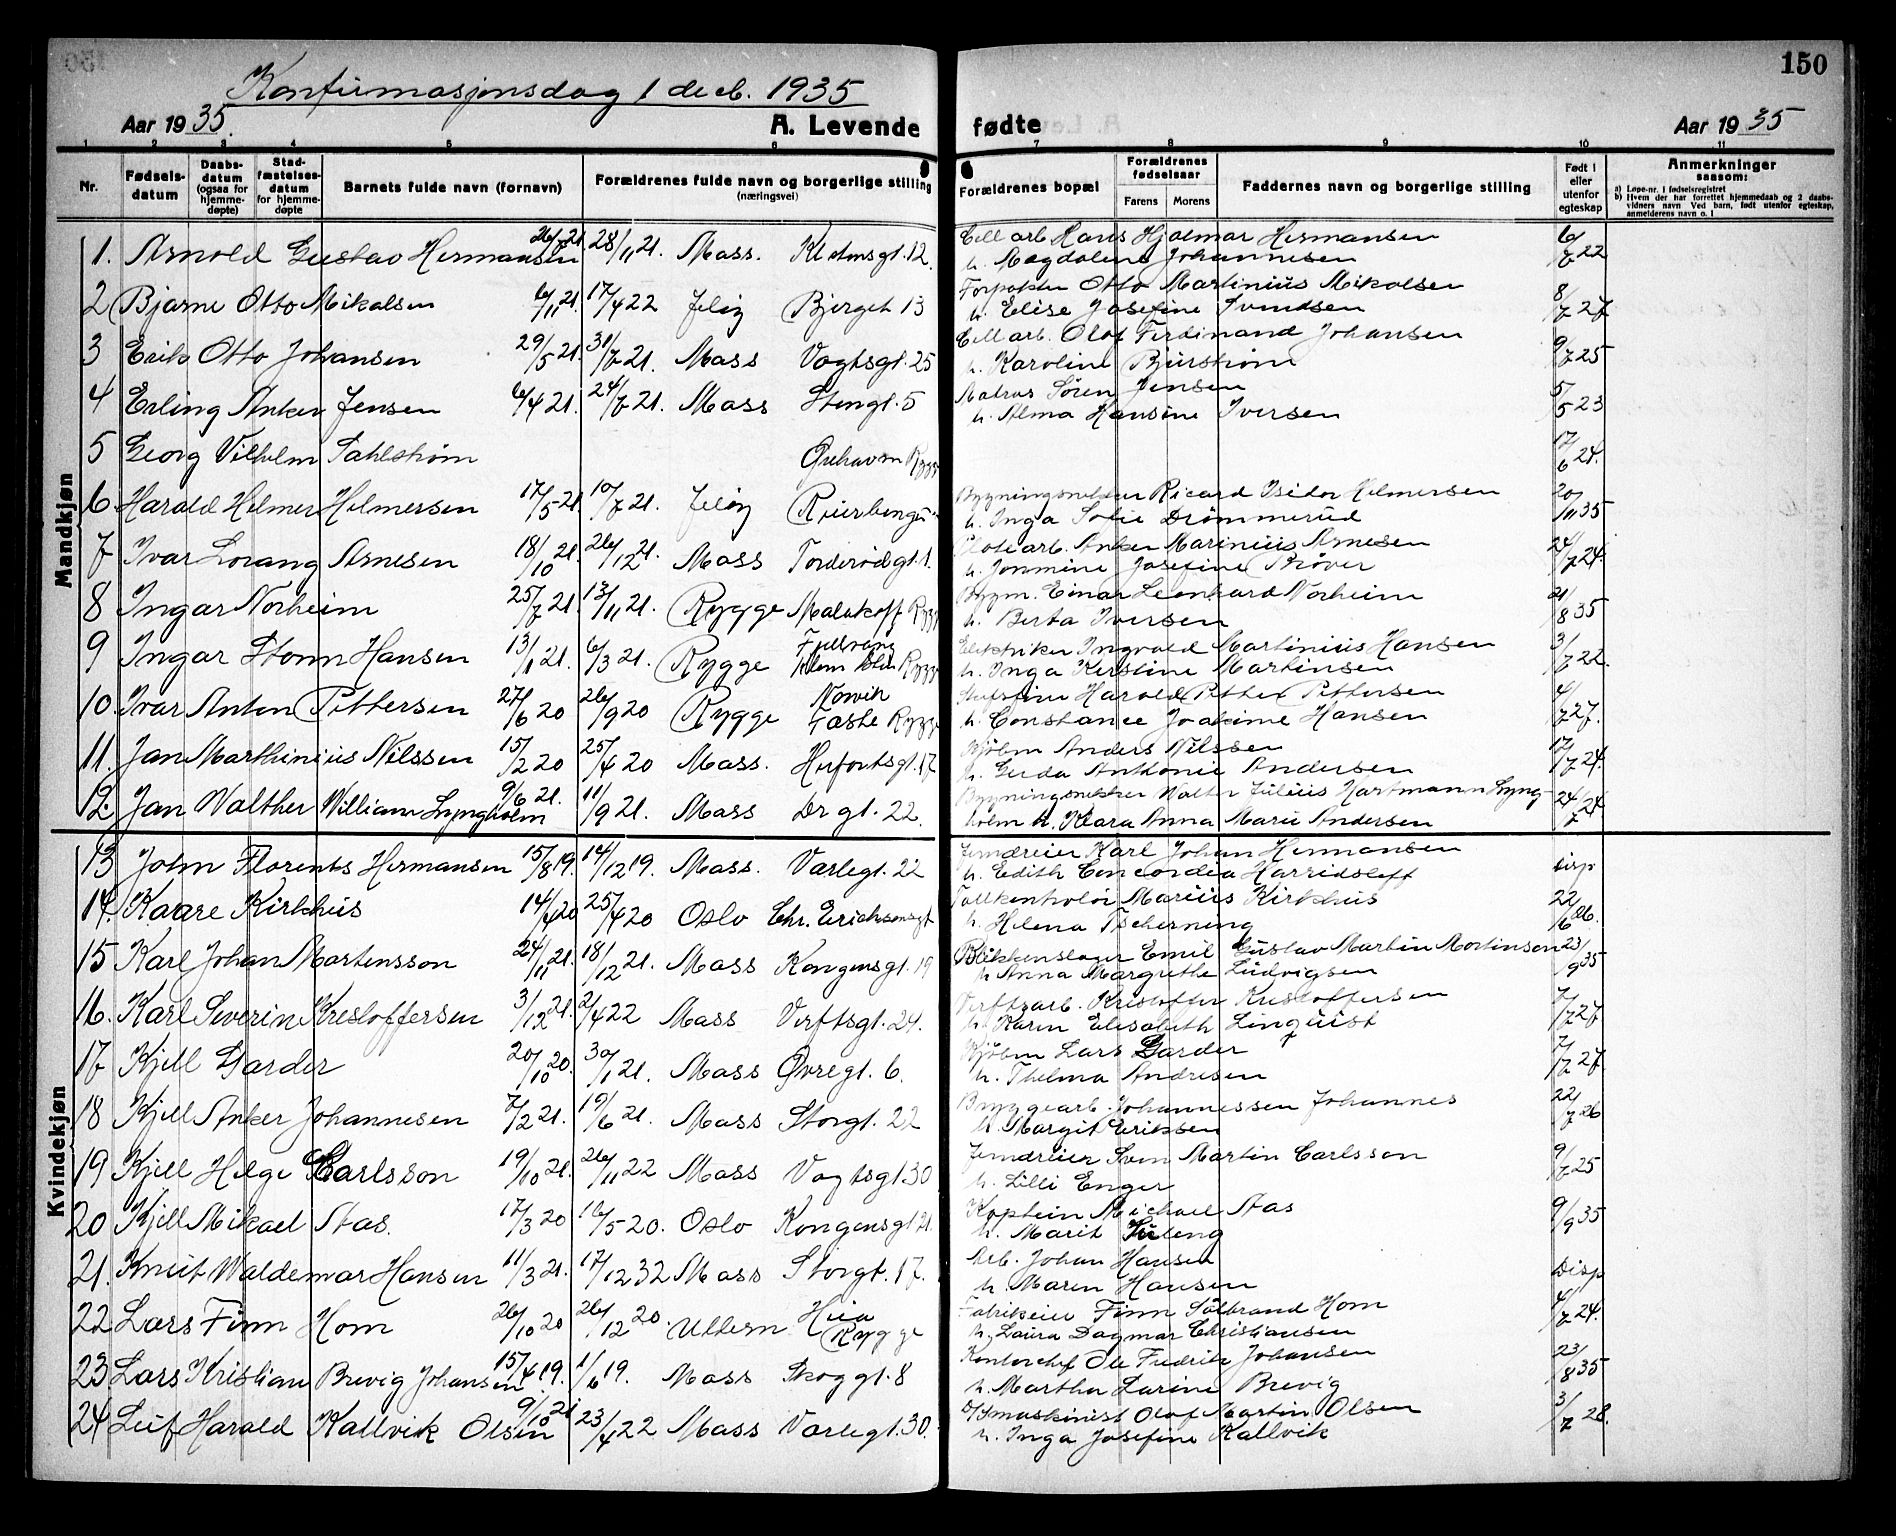 150
Konfirmasjonsdag 1 decb. 1935
Aar 1935.
A. Levende
fødte
Aar 1935
1 2 3 4 5 6 7 8 9 10 11
Nr.
Fødsels-datum
Daabs-datum (ogsaa for hjemme-døpte)
Stad-fæstelses-datum for hjemme-døpte
Barnets fulde navn (fornavn)
Forældrenes fulde navn og borgerlige stilling (næringsvei)
Forældrenes bopæl
Forældrenes fødselsaar
Farens Morens
Faddernes navn og borgerlige stilling
Født i eller utenfor egteskap
Anmerkninger saasom:
a) Løpe-nr. i fødselsregistret
b) Hvem der har forrettet hjemmedaab og 2 daabs-vidners navn Ved barn, født utenfor egteskap, anmelderens navn o. l
Mandkjøn
1. Arnold Gustav Hermansen 26/7 21 28/11 21. Mass. Cell arb Hans Hjalmar Hermansen 6/7 22
h. Magdalene Johannesen
2 Bjarne Otto Mikalsen 6/11 21. 17/4 22 Jeløy Bjerget 13 Forpakter Otto Martinius Mikalsen 8/7 27
h. Elise Josefine Svendsen
3 Erik Otto Johansen 29/5 21. 31/7 21. Mass Vogtsgt. 25 Cell arb. Olaf Ferdinand Johansen 9/7 25
h. Karoline Bjurstrøm
4 Erling Anker Jensen 6/4 21. 24/7 21. Mass Stengt. 5 Matros Sören Jensen 5/5 23
h. Alma Hansine Iversen
5 Georg Vilhelm Dahlstrøm Rygge 17/6 24.
6 Harald Helmer Helmersen 17/5 21 10/7 21. Jeløy Bygningssnekker Ricard Isidor Helmersen 20/11 35
h. Inga Sofie Drömmerud
7 Ivar Lorang Arnesen 18/10 21. 26/12 21. Mass Torderødgt. 1. arb. Anker Marinius Arnesen 24/7 24.
h. Jonmine Josefine Prøver
8 Ingar Norheim 25/7 21. 13/11 21. Rygge Malakoff Rygge Bygm. Einar Leonhard Norheim 21/8 35
h. Berta Iversen
9 Ingar Stenn Hansen 13/1 21. 6/3 21. Rygge Fjellvang Rygge Elektriker Ingvald Martinius Hansen 3/7 22.
h. Inga Kirstine Martinsen
10. Ivar Anton Pettersen 27/6 20 26/9 20 Rygge Norvik Taste Rygge Harald Petter Pettersen 4/7 27.
h. Constance Joakime Hansen
11. Jan Marthinius Nilssen 15/2 20 25/4 20 Mass. Herfortsgt. 17 Kjøbm Anders Nilssen 17/7 24.
h. Gerda Antonie Andersen
12. Jan Walther William Lyngholm 9/6 21. 11/9 21. Mass Dr gt. 22. Bygningssnekker Walter Julius Hartmann Lyng- 24/7 24
holm h. Klara Anna Marie Andersen
Kvindekjøn
13 John Florents Hermansen 15/8 19. 14/12 19. Mass. Varlegt. 22 Jerndreier Karl Johan Hermansen disp
h. Edith Concordia Harridsleff
14. Kaare Kirkhus 14/4 20 25/4 20 Oslo Chr. Erichsensgt Marius Kirkhus 22/6 06.
h. Helena Tscherning
15 Karl Johan Martensson 24/11 21. 18/12 21. Mass Kongensgt. 19 Blikkenslager Emil Gustav Martin Mortinson 23/9 35
h Anna Margrethe Ludvigsen
16. Karl Severin Kristoffersen 3/12 21. 2/4 22 Mass Verftsgt. 24. Verftsarb. Kristoffer Kristoffersen 7/7 27
h. Karen Elisabeth Linquist
17 Kjell Garder 20/10 20. 30/1 21. Mass Øvregt. 6. Kjøbm Lars Garder 7/7 27
h. Thelma Andresen
18 Kjell Anker Johannesen 7/2 21. 19/6 21. Mass Storgt. 22 Bryggearb. Johannessen Johannes 22/7 26
h. Margit Eriksen
19 Kjell Helge Carlsson 19/10 21. 26/11 22 Mass Vogtsgt. 30 Jerndreier Sven Martin Carlsson 9/7 25
h. Lilli Enger
20 Kjell Mikael Aas. 17/3 20 16/5 20. Oslo Kongensgt 21. Kaptein Michael Aas 9/9 35
h. Marit Kuleng
21. Knut Waldemar Hansen 11/3 21. 17/12 32 Mass Storgt. 17. Arb. Johan Hansen Disp
h. Maren Hansen
22 Lars Finn Hom 26/10 20 26/12 20. Ullern Heia Rygge Fabrikeier Finn Hom 4/7 24.
h. Laura Dagmar Christiansen
23 Lars Kristian Brevig Johansen 15/4 19. 1/6 19. Mass Skoggt. 8 Kontorchef Ole Fredrik Johansen 23/8 35
h. Martha Larine Brevig
24 Leif Harald Kallvik Olsen 9/10 21 23/4 22 Mass Varlegt. 30. Olaf Martin Olsen 3/7 28.
h. Inga Josefine Kallvik